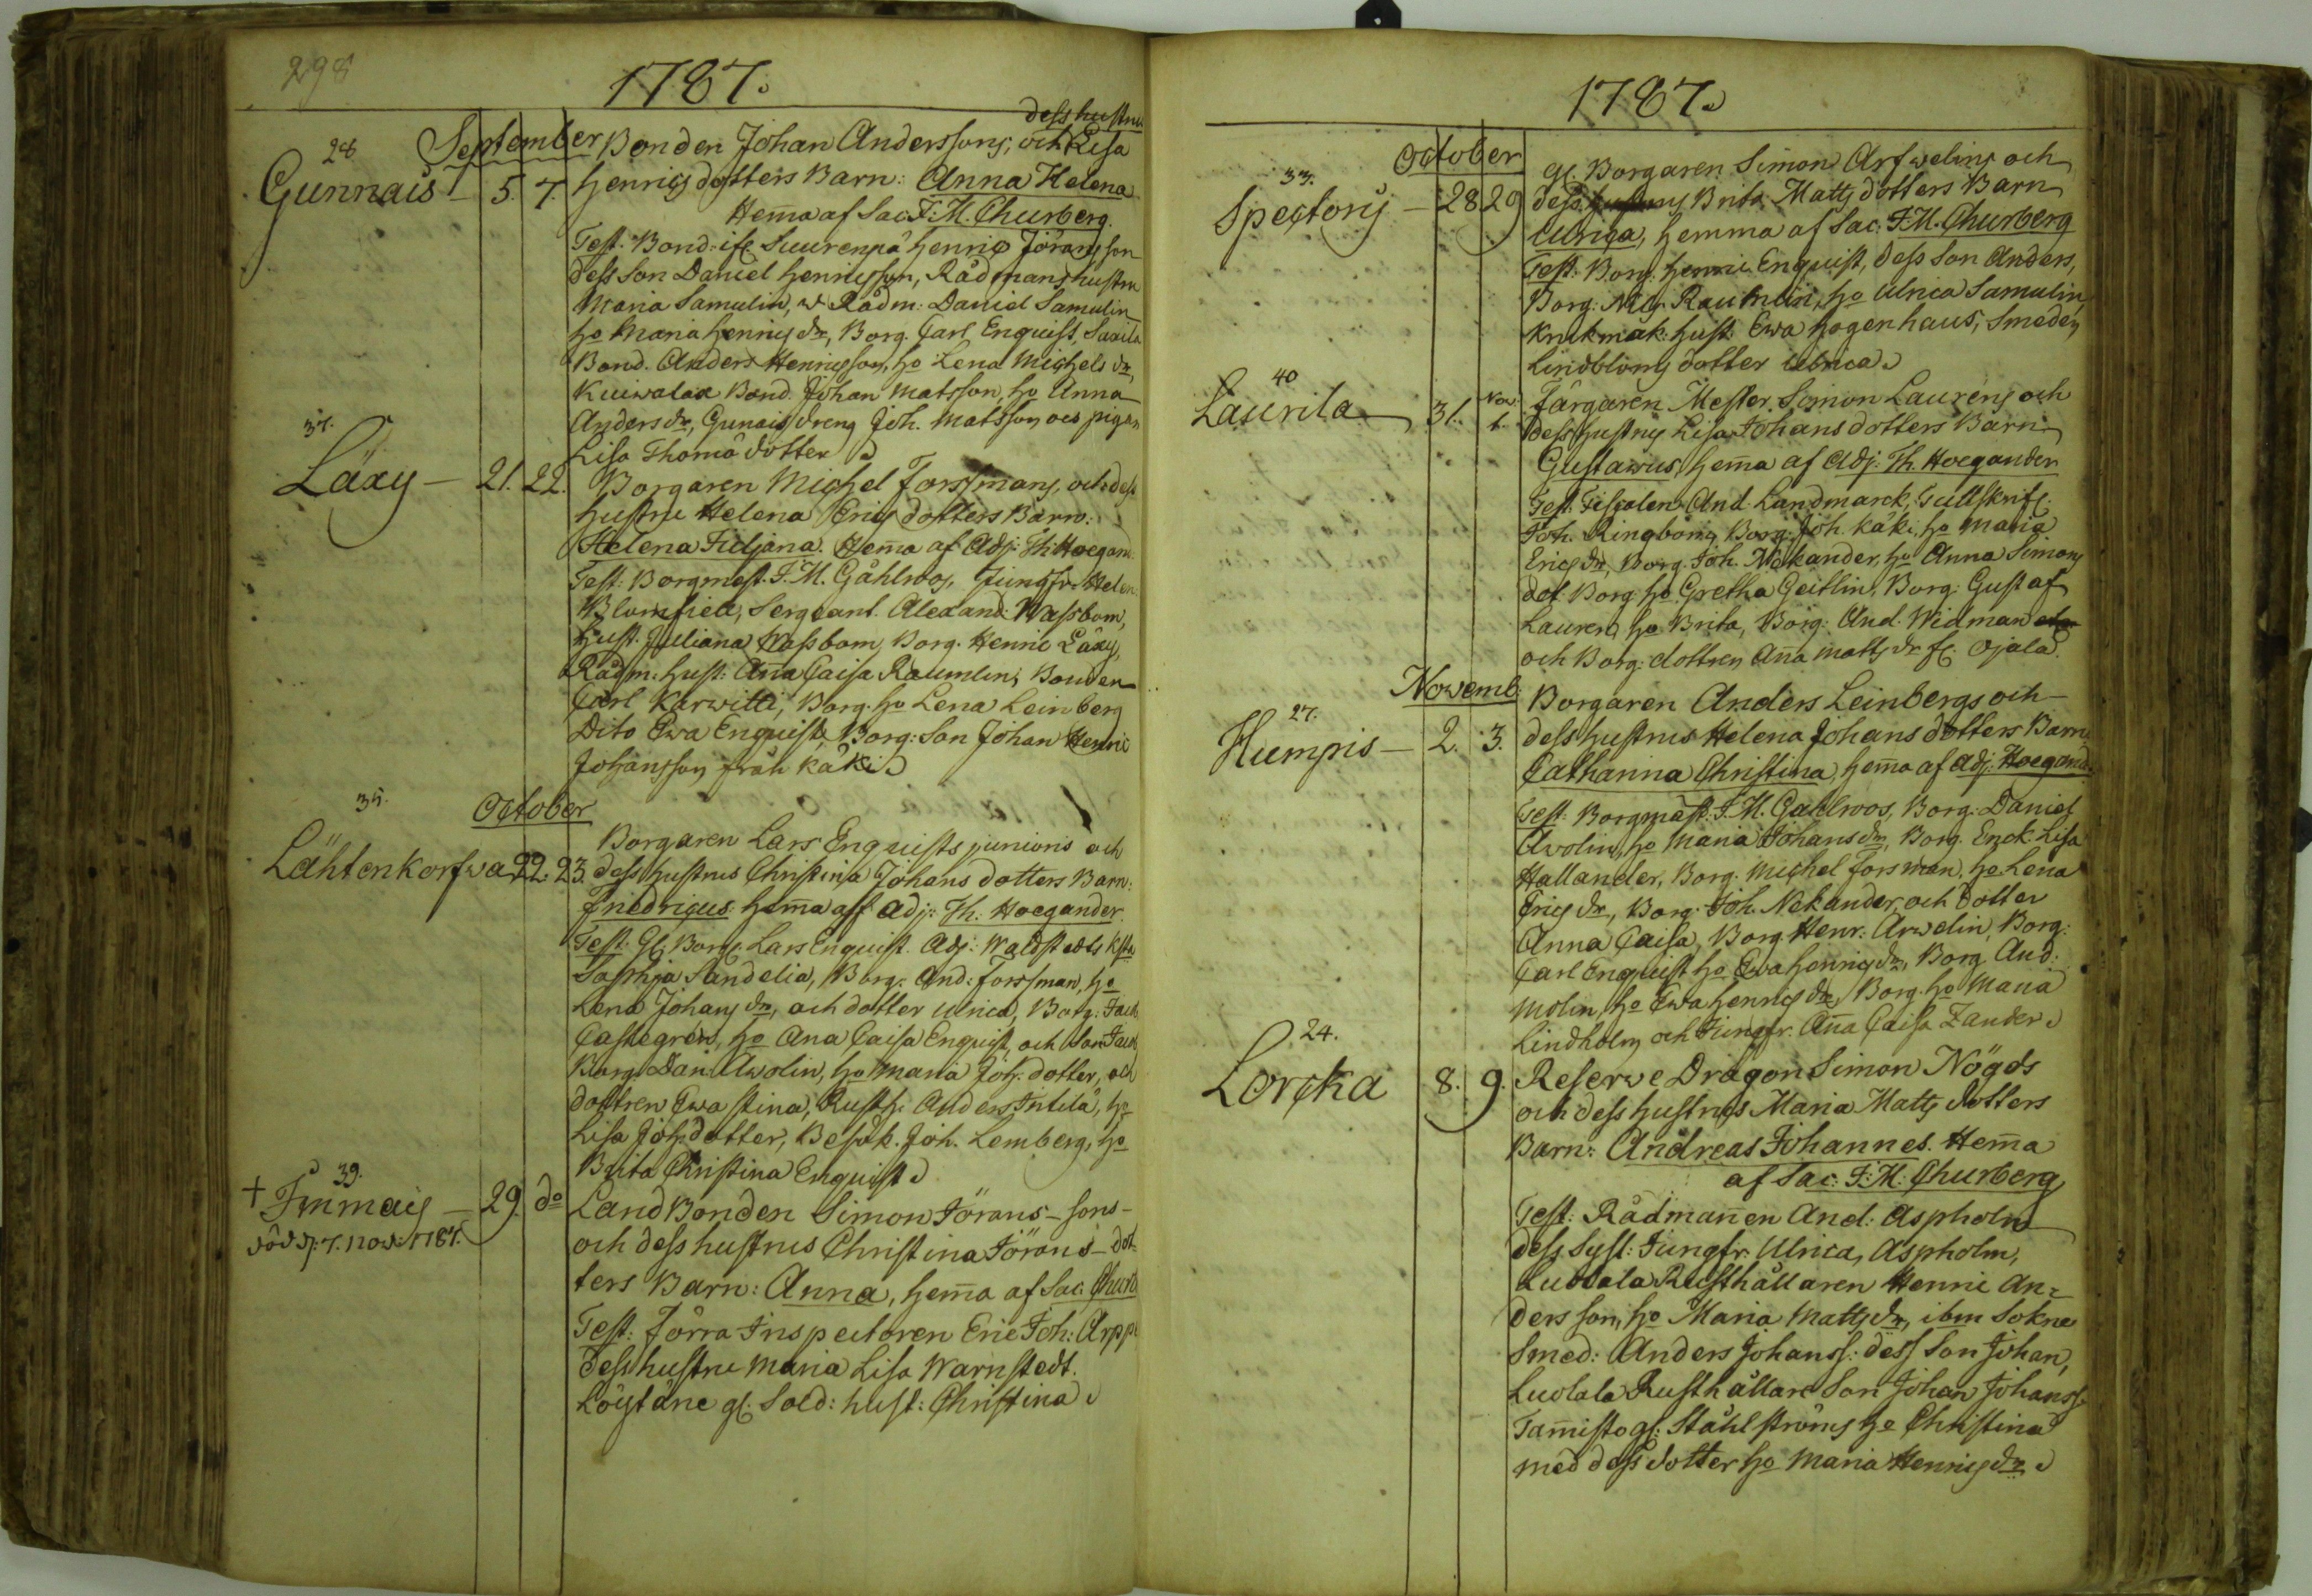 298
1787.
September
dess hustru
28
Gunnais — 5. 7.
Bonden Johan Anderssons, och Lisa
Henrics dotters Barn: Anna Helena
Hem̄a af Sac. F. M. Churberg.
Test. Bond. ifr. Suurenpä Henric Jöransson
dess Son Daniel Henricsson, Rådmans hustru
Maria Samulin, Rådm: Daniel Samulin
ho Maria Henrics dr, Borg. Carl Enquist, Saxila
Bond. Anders Henricsson, ho Lena Michels dr,
Kuiwalax Bond. Johan Matsson, ho Anna
Anders dr, Gunais dreng Joh. Matsson och pigan
Lisa Thomä dotter
37.
Läxy — 21. 22.
Borgaren Michel Forssmans, och dess
hustru Helena Erics dotters Barn:
Helena Juljana. Hem̄a af Adj: Th. Hoegand:
Test: Borgmest. F. M. Gåhlroos, Jungfr. Helen.
Blomfielt, Sergeant. Alexand: Wassbom,
Hust. Juliana Wassbom, Borg. Henric Läxy,
Rådm: hust: An̄a Caisa Raumlin, Bonden
Carl Karwitti, Borg. ho Lena Leinberg
Dito Ewa Enquist, Borg: Son Johan Henric
Johansson från Käki
October
35.
Lähtenkorfwa 22. 23.
Borgaren Lars Enquists junioris och
dess hustrus Christina Johans dotters Barn:
Fridricus hem̄a af Adj: Th. Hoegander.
Test: Gl. Borg. Lars Enquist. Adj: Waldstedts
Sophja Sandelia, Borg. And: Forssman, ho
Lena Johans dr, och dotter Ulrica, Borg: Jacob
Castegren, ho Ana Caisa Enquist, och Son Jacob
Borg. Dan: Awolin, ho Maria Joh. dotter, och
dottren Ewa Stina, Rusth. Anders Intilä, ho
Lisa Joh. dotter, Besök. Joh. Lemberg, ho
Brita Christina Enquist
39.
+ Inmais — 29. do
död d. 7. nov. 1787.
Land Bonden Simon Jörans-sons-
och dess hustrus Christina Jörans-dot-
ters Barn: Anna, hem̄a af Sac. Churb
Test: Förra Inspectoren Eric Joh: Arppe
dess hustru Maria Lisa Warnstedt.
Löytäne gl: Sold: hust: Christina
1787.
October
33.
Spectorj — 28 29
gl. Borgaren Simon Arfwelins och
dess hustrus Brita Matts dotters Barn
Ulrica, hemma af Sac: F. M. Churberg
Test: Borg. Henric Enquist, dess Son Anders,
Borg: Raumlin, ho Ulrica Samulin,
Krukmak: hust: Ewa Hogenhaus, Smeden
Lindbloms dotter Ulrica
40
Laurila — 31. Nov. 1.
Färgaren Mester Simon Laurens och
dess hustrus Lisa Johans dotters Barn
Gustavus, hem̄a af Adj: Th. Hoegander
Test. Fiscalen And. Landmarck, Tullskrif.
Joh. Ringbom, Borg: Joh. Käki, ho Maria
Erics dr, Borg. Joh. Nekander, ho Anna Simons
dot. Borg. ho Gretha Geitlin, Borg: Gustaf
Lauren, ho Brita, Borg: And. Widman
och Borg. dottren An̄a Matts dr fr. Ojala
Novemb:
27.
Humpis — 2. 3.
Borgaren Anders Leinbergs och
dess hustrus Helena Johans dotters Barn
Catharina Christina, hem̄a af Adj: Hoegand
Test: Borgmest. F. M. Gahlroos, Borg: Daniel
Awolin, ho Maria Johans dr, Borg. Enck. Lisa
Hallander, Borg. Michel Forsman, ho Lena
Erics dr, Borg. Joh. Nekander, och dotter
Anna Caisa, Borg Henr: Arwelin, Borg:
Carl Enquist ho Ewa Henrics dr, Borg And:
Molin, ho Ewa Henrics dr, Borg. ho Maria
Lindholm och Jungfr. An̄a Caisa Zander
24.
Lorcka 8. 9.
Reserwe Dragon Simon Nögds
och dess hustrus Maria Matts dotters
Barn: Andreas Johannes. Hem̄a
af Sac: F: M: Churberg
Test: Rådman̄en And: Aspholm
dess Syst: Jungfr. Ulrica, Aspholm,
Luolala Rusthållaren Henric An-
dersson, ho Maria Matts dr, ibm Sokne
Smed: Anders Johanss: dess Son Johan,
Luolala Rusthållare Son Johan Johanss.
Tam̄isto gl: Stålströms ho Christina
med dess dotter ho Maria Henrics dr